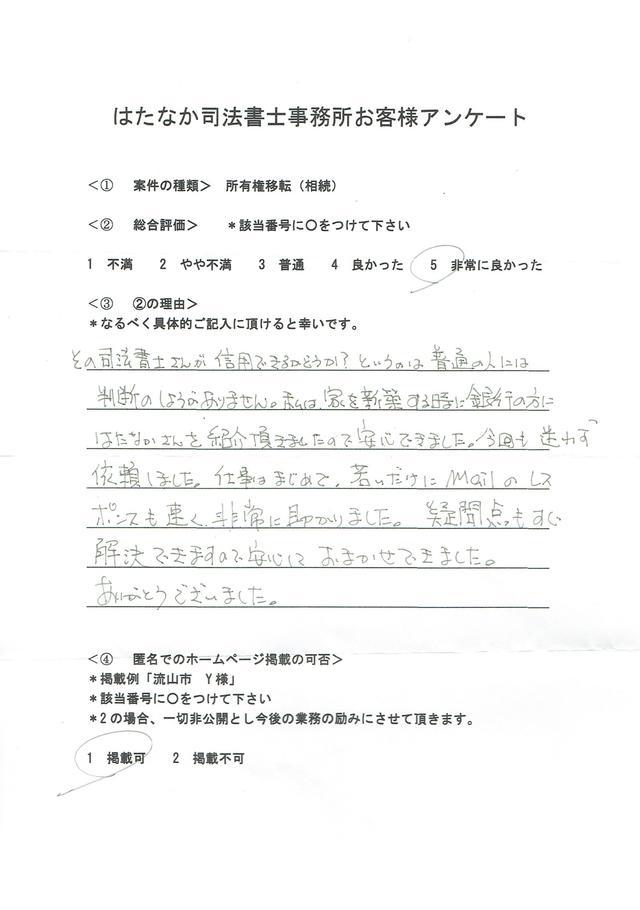 はたなか司法書士事務所お客様アンケート
＜① 案件の種類＞ 所有権移転（相続）
＜② 総合評価＞ ＊該当番号に〇をつけて下さい
1 不満 2 やや不満 3 普通 4 良かった 5 非常に良かった
＜③ ②の理由＞
＊なるべく具体的ご記入に頂けると幸いです。
その司法書士さんが信用できるかどうか？というのは普通の人には
判断のしようがありません。私は、家を新築する時に銀行の方に
はたなかさんを紹介頂きましたので安心できました。今回も迷わず
依頼しました。仕事はまじめで、若いだけにMailのレス
ポンスも速く、非常に助かりました。疑問点もすぐ
解決できますので安心して おまかせできました。
ありがとうございました。
＜④ 匿名でのホームページ掲載の可否＞
＊掲載例「流山市 Y様」
＊該当番号に〇をつけて下さい
＊2の場合、一切非公開とし今後の業務の励みにさせて頂きます。
1 掲載可 2 掲載不可